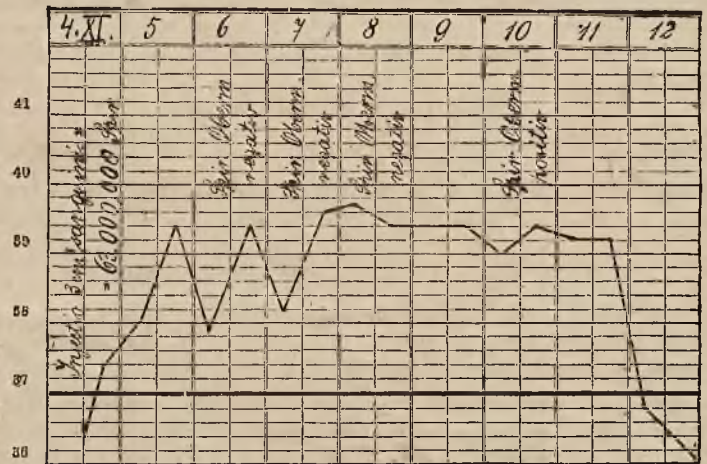 4. XI. 5 6 7 8 9 10 11 12
41
40
39
38
37
36
3 cm³ sanguinis =
= 63 000 000 Spir
Spir Oberm
negativ
Spir Oberm
negativ
Spir Oberm
negativ
Spir Oberm
positiv